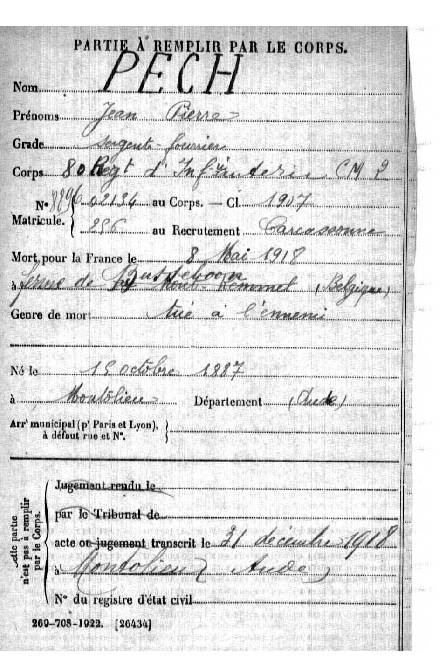 PARTIE À REMPLIR PAR LE CORPS.
Nom PECH
Prénoms Jean Pierre
Grade sergent-fourrier
Corps 80 Regt d'Infanterie CM 2
N° 02134 au Corps. — Cl. 1907
Matricule. 256 au Recrutement Carcassonne
Mort pour la France le 8 Mai 1918
à ferme de Busseboom Mont-Kemmel (Belgique)
Genre de mort tué à l'ennemi
Né le 15 octobre 1887
à Montolieu Département (Aude)
Arr' municipal (p' Paris et Lyon),
à défaut rue et N°.
Cette partie
n'est pas à remplir
par le Corps.
Jugement rendu le
par le Tribunal de
acte ou jugement transcrit le 31 décembre 1918
à Montolieu (Aude)
N° du registre d'état civil
269-708-1922. [26434]